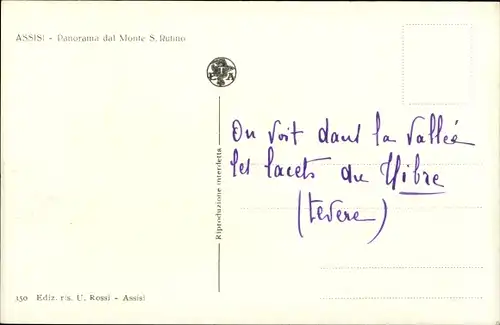 ASSISI - Panorama dal Monte S. Rufino
PTA
On voit dans la vallée
les lacets du Tibre
(tevere)
Riproduzione interdetta
150 Ediz. ris. U. Rossi - Assisi